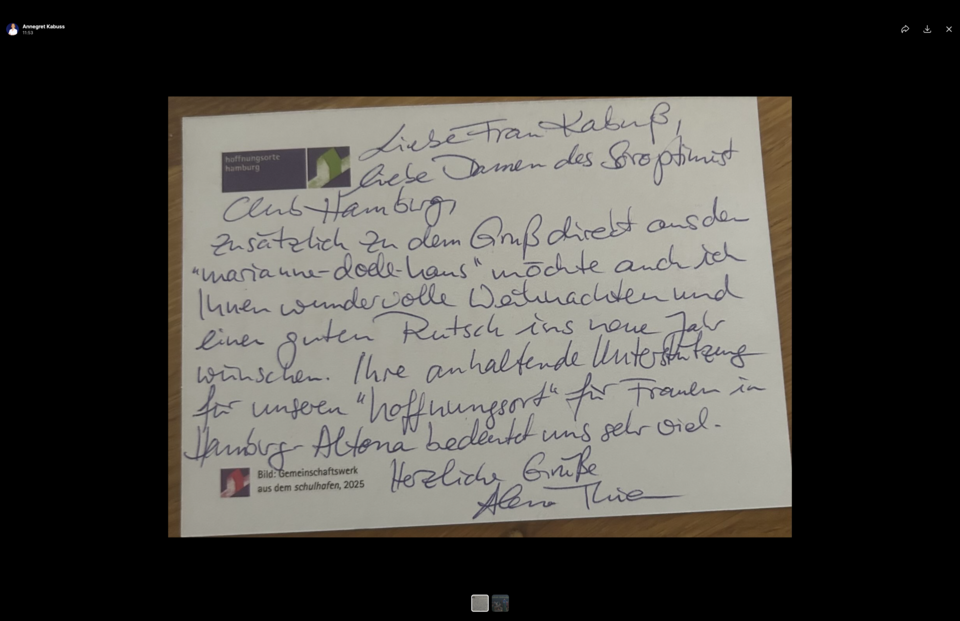 Annegret Kabuss
11:53
hoffnungsorte
hamburg
Liebe Frau Kabuß,
liebe Damen des Soroptimist
Club Hamburg,
zusätzlich zu dem Gruß direkt aus dem
"marianne-doell-haus" möchte auch ich
Ihnen wundervolle Weihnachten und
einen guten Rutsch ins neue Jahr
wünschen. Ihre anhaltende Unterstützung
für unseren "hoffnungsort" für Frauen in
Hamburg-Altona bedeutet uns sehr viel.
Herzliche Grüße
Bild: Gemeinschaftswerk
aus dem schulhafen, 2025